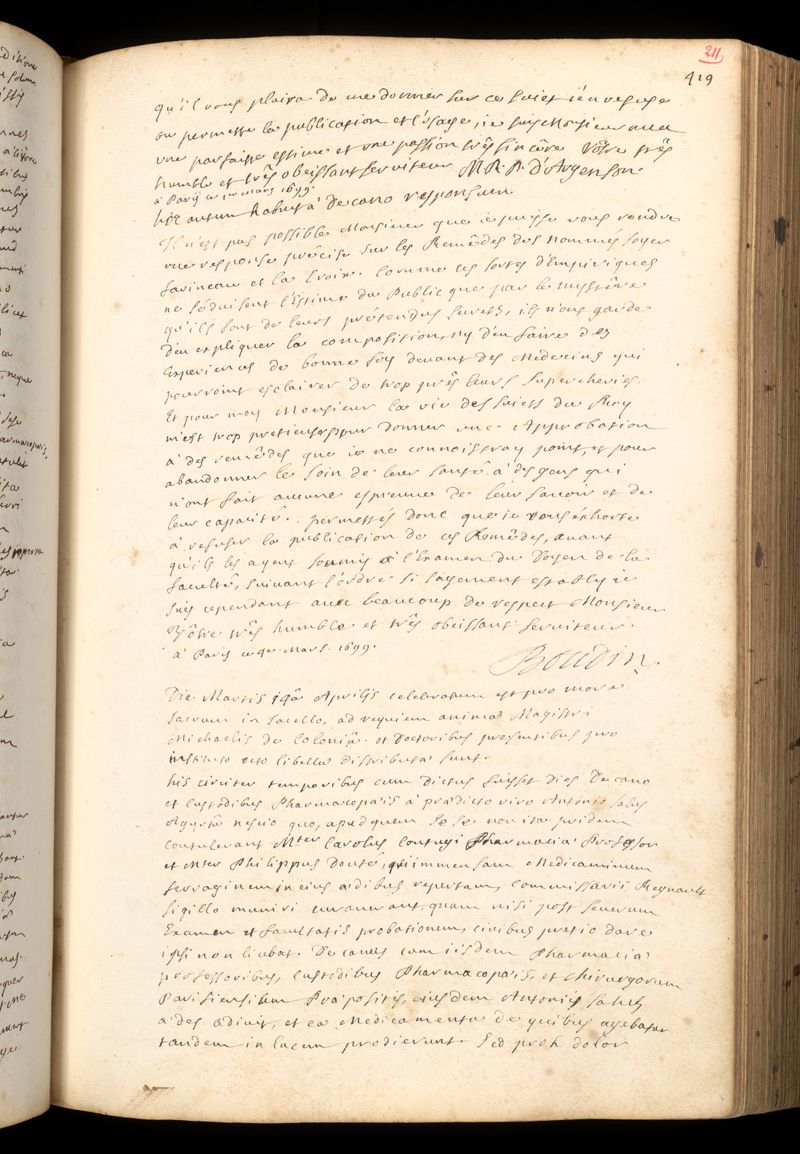 211
419
qu'il vous plaira de me donner sur ce suiet i'en refuse
ou permette la publication et l'usage, ie suis Monsieur auec
une parfaitte estime et une passion trés sincére Vôtre trés
humble et trés obeissant serviteur M. R. D. d'Argenson
à Paris ce 1er mars 1699.
hîc autem habuit à decano responsum.
Il n'est pas possible Monsieur que ie puisse vous rendre
une response précise sur les Remédes des nommés
Savineau et la Croix. Comme ces sortes d'Empiriques
ne séduisent l'Estime du Public que par le mystére
qu'ils font de leurs prétendus secrets, ils n'ont garde
d'en expliquer la composition, ny d'en faire des
Experiences de bonne foy deuant des Medecins qui
pourroint esclairer de trop prés leurs supercheries.
Et pour moy Monsieur la vie des suiets du Roy
m'est trop pretieuse pour donner une Approbation
à des remédes que ie ne connoistray point, et pour
abandonner le soin de leur santé à des gens qui
n'ont fait aucune espreuue de leur sauoir et de
leur capacité. permettés donc que ie vous exhorte
à refuser la publication de ces Remédes, auant
qu'ils les ayent soumis à l'Examen du Doyen de la
faculté, suiuant l'ordre si sagement establÿ ie
suis cependant auec beaucoup de respect Monsieur
Vôtre trés humble et trés obeissant serviteur.
à Paris ce 4e Mars. 1699.
Boudin.
Die Martis 14â Aprilis celebratum est pro more
sacrum in sacello, ad requiem animae Magistri
Michaelis de Coloniâ. et Doctoribus praesentibus quo
instituto octo libellae distributae sunt.
his circiter temporibus cum dictus fuisset dies Decano
et Custodibus Pharmacopaeis à praedicto viro Antonio
Agyrtâ nescio quo, apud quem se se non ita pridem
contulerant Mter Carolus Contugi Pharmaciae Professor
et Mter Philippus Douté, qui immensam Medicaminum
ferraginem in eius aedibus repertam, Commissarii Regnault
sigillo muniri curauerant, quam nisi post seuerum
Examen et facultatis probationem, ciuibus pretio dare
ipsi non liebat. Decanus cum iisdem Pharmaciae
professoribus, Custodibus Pharmacopaeis, et Chirurgorum
Parisiensium Praepositis, eiusdem Antonii
aedes adiuit, et ea Medicamenta de quibus agebatur
tandem in lucem prodierunt. Sed proh dolor